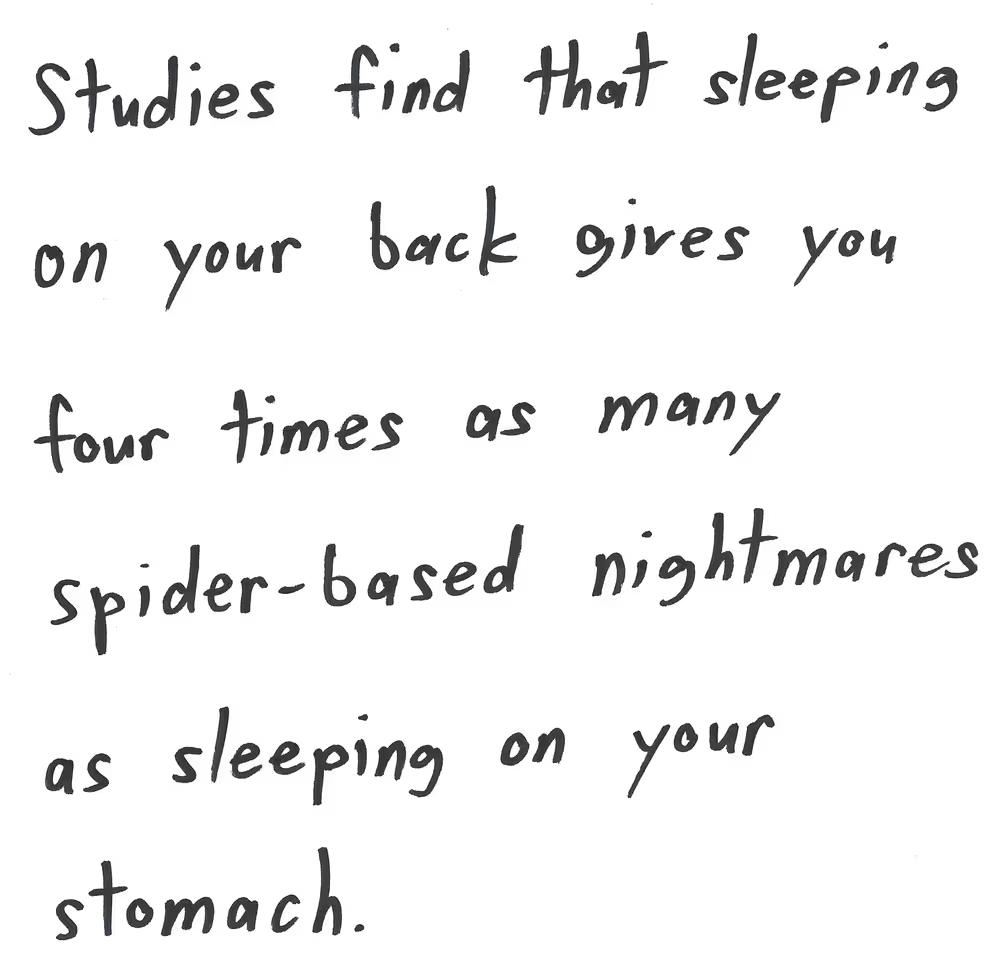 Studies find that sleeping
on your back gives you
four times as many
spider-based nightmares
as sleeping on your
stomach.